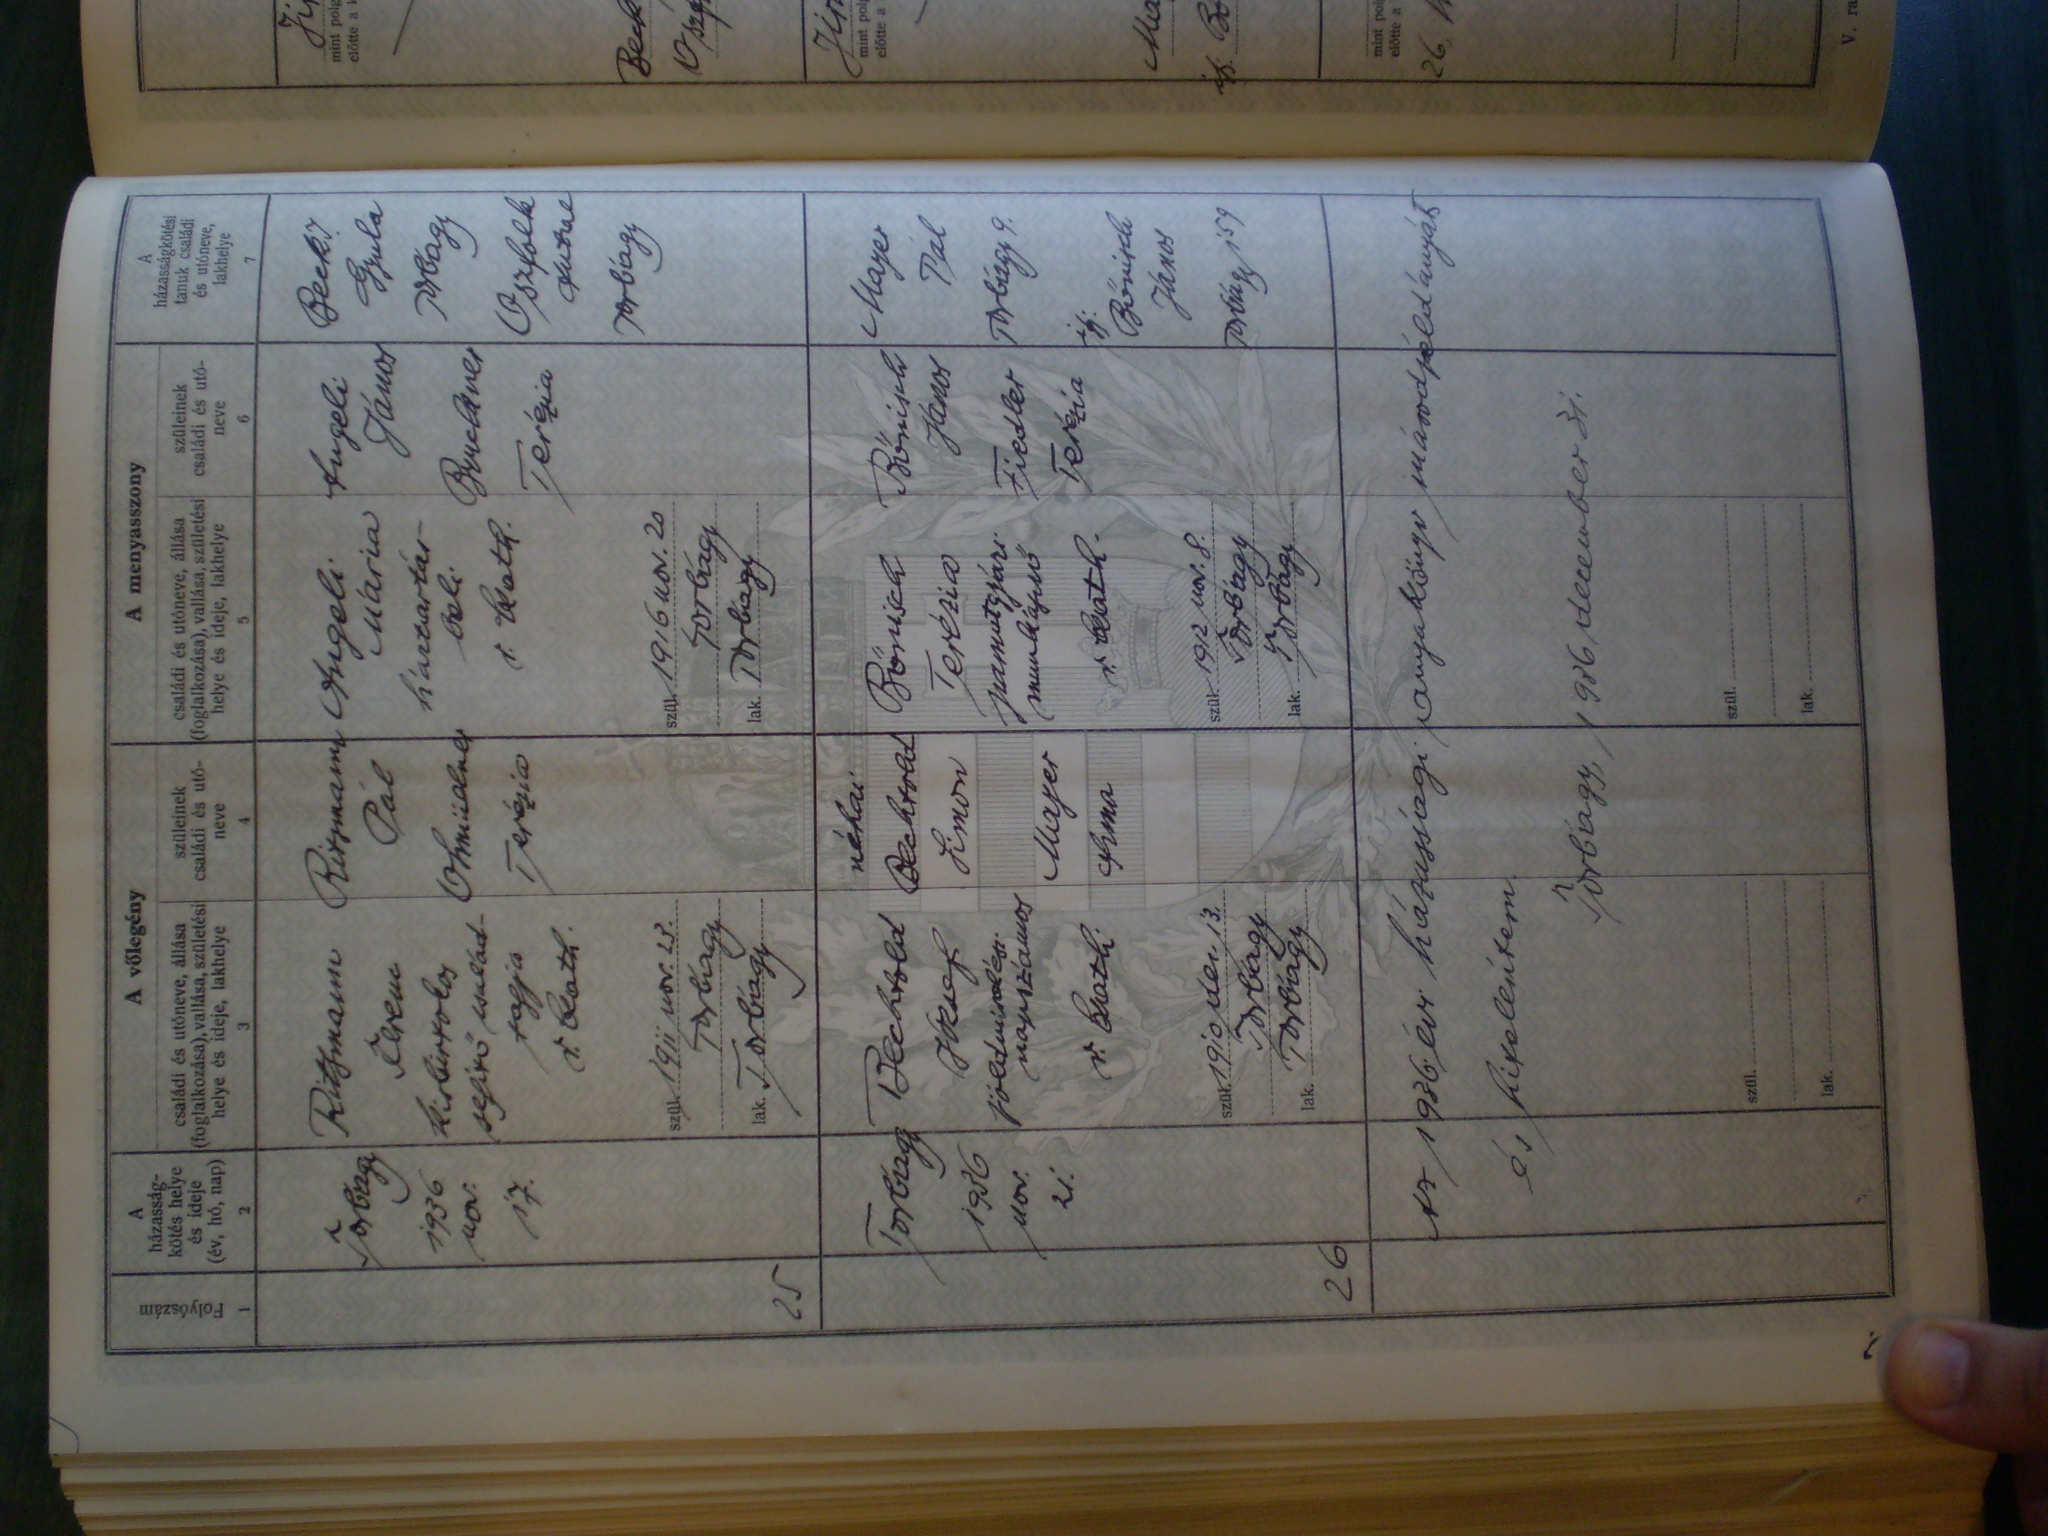 A
házasság-
kötés helye
és ideje
(év, hó, nap)
A vőlegény
A menyasszony
A
házasságkötési
tanuk családi
és utóneve,
lakhelye
Folyószám
családi és utóneve, állása
(foglalkozása), vallása, születési
helye és ideje, lakhelye
szüleinek
családi és utó-
neve
családi és utóneve, állása
(foglalkozása), vallása, születési
helye és ideje, lakhelye
szüleinek
családi és utó-
neve
1
2
3
4
5
6
7
25
Torbágy
1936
nov.
17.
Ritzmann
Ferenc
r. kath.
szül. 1911 nov. 23.
Torbágy
lak. Torbágy
Ritzmann
Pál
Terézia
Angeli
Mária
háztartás-
beli
r. kath.
szül. 1916 nov. 20
Torbágy
lak. Torbágy
Angeli
János
Buckner
Terézia
Beck
Gyula
Torbágy
Torbágy
26
Torbágy
1936
nov.
21.
Bechtold
József
napszámos
r. kath.
szül. 1910 dec. 13.
Torbágy
lak. Torbágy
néhai
Bechtold
Simon
Mayer
Anna
Bőnisch
Terézia
pamutgyári
munkásnő
r. kath.
szül. 1912 nov. 8.
Torbágy
lak. Torbágy
Bőnisch
János
Fiedler
Terézia
Mayer
Pál
Torbágy 9.
ifj.
Bőnisch
János
Torbágy 159
Az 1936 évi házassági anyakönyv másodpéldányát
és hitelesítem.
Torbágy, 1936 december 31.
szül.
lak.
szül.
lak.
mint polg
előtte a
Beck
mint polg
előtte a
ifj. Bő
mint pol
előtte a
26
V.